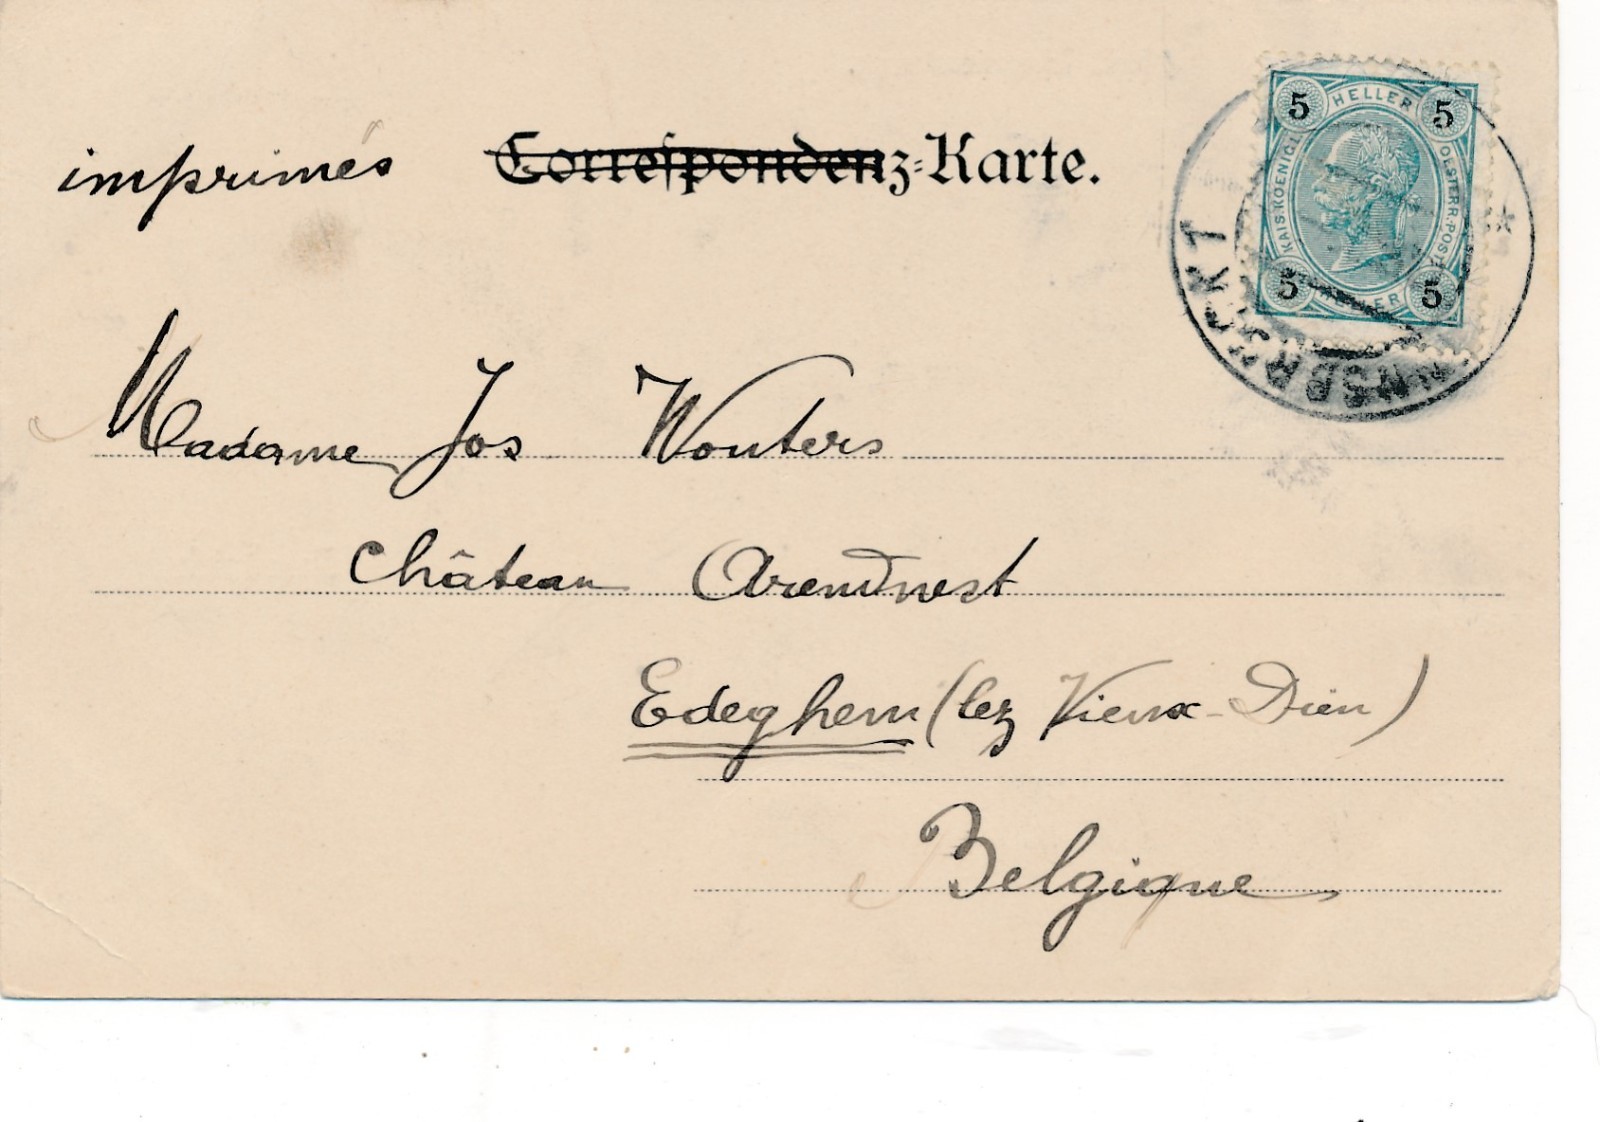 imprimés
Correspondenz-Karte.
5 HELLER 5
KAIS. KOENIGL.
OESTERR. POST
5 HELLER 5
INNSBRUCK 1
Madame Jos Wouters
Château Arendnest
Edeghem (lez Vieux-Dieu)
Belgique